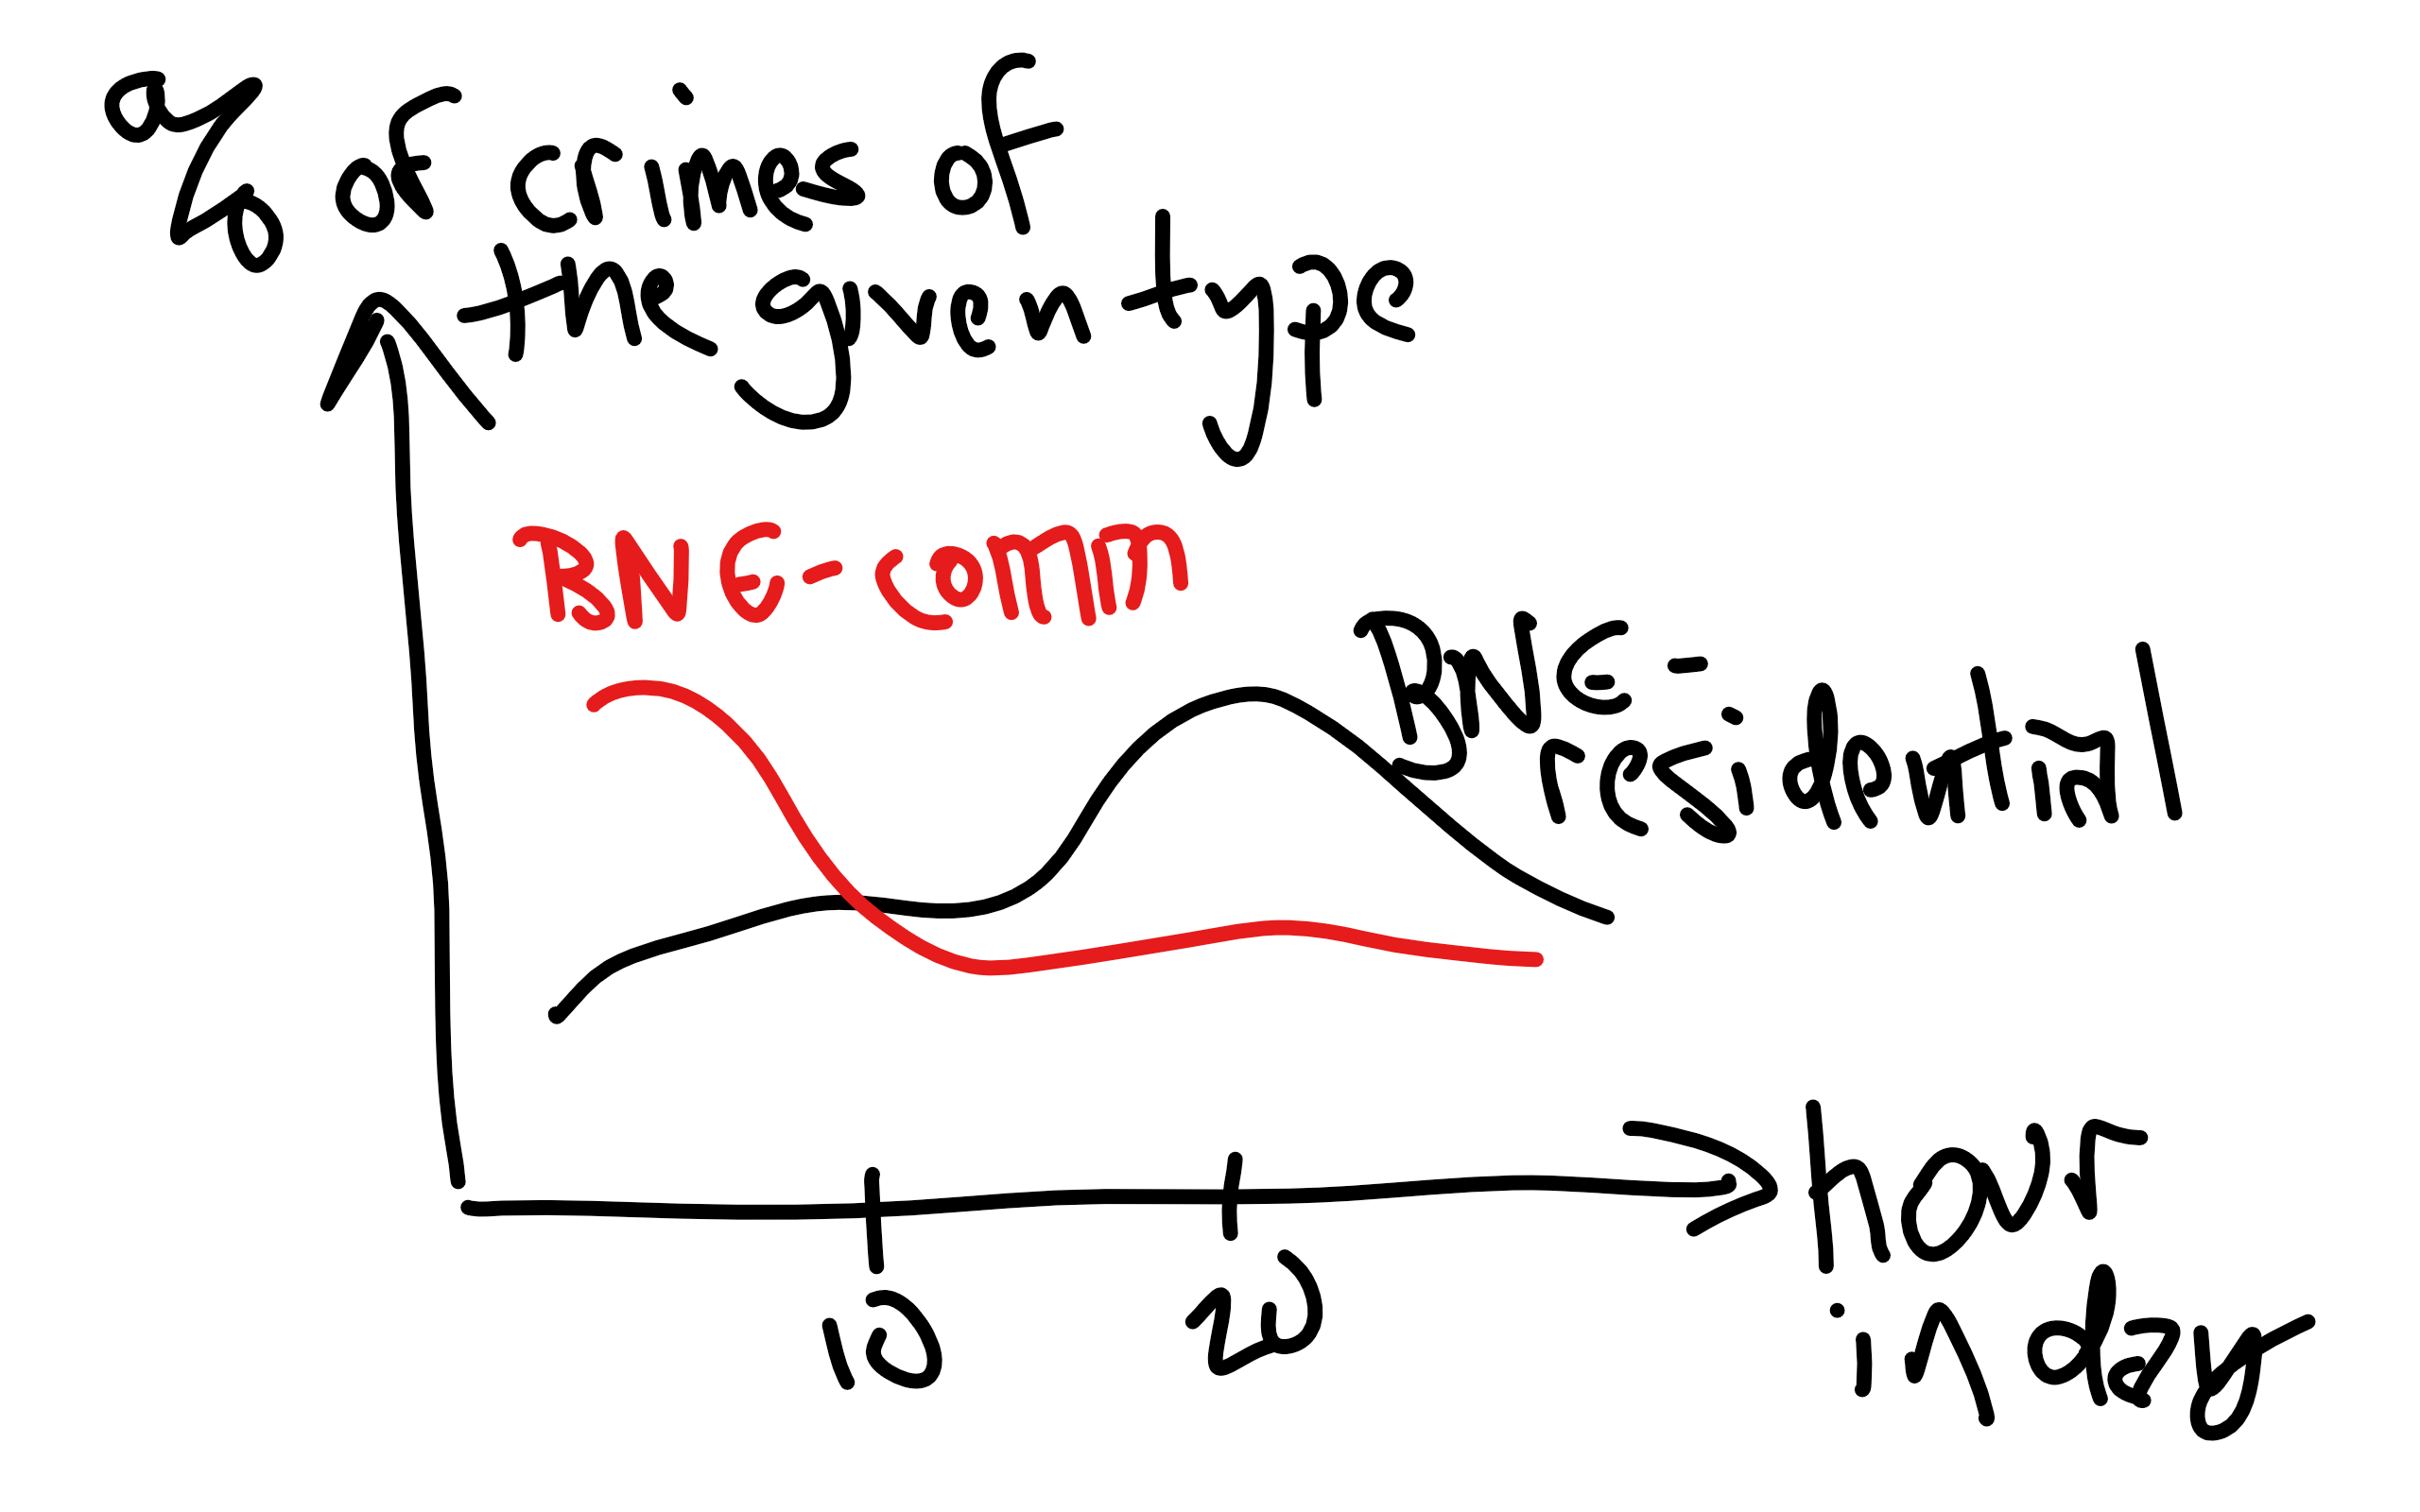 % of crimes of
the given type
BNE-comm
BNE-
residential
10
20
hour
in day